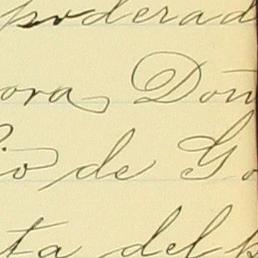 poderad
ora Don
io de Go
ta del p